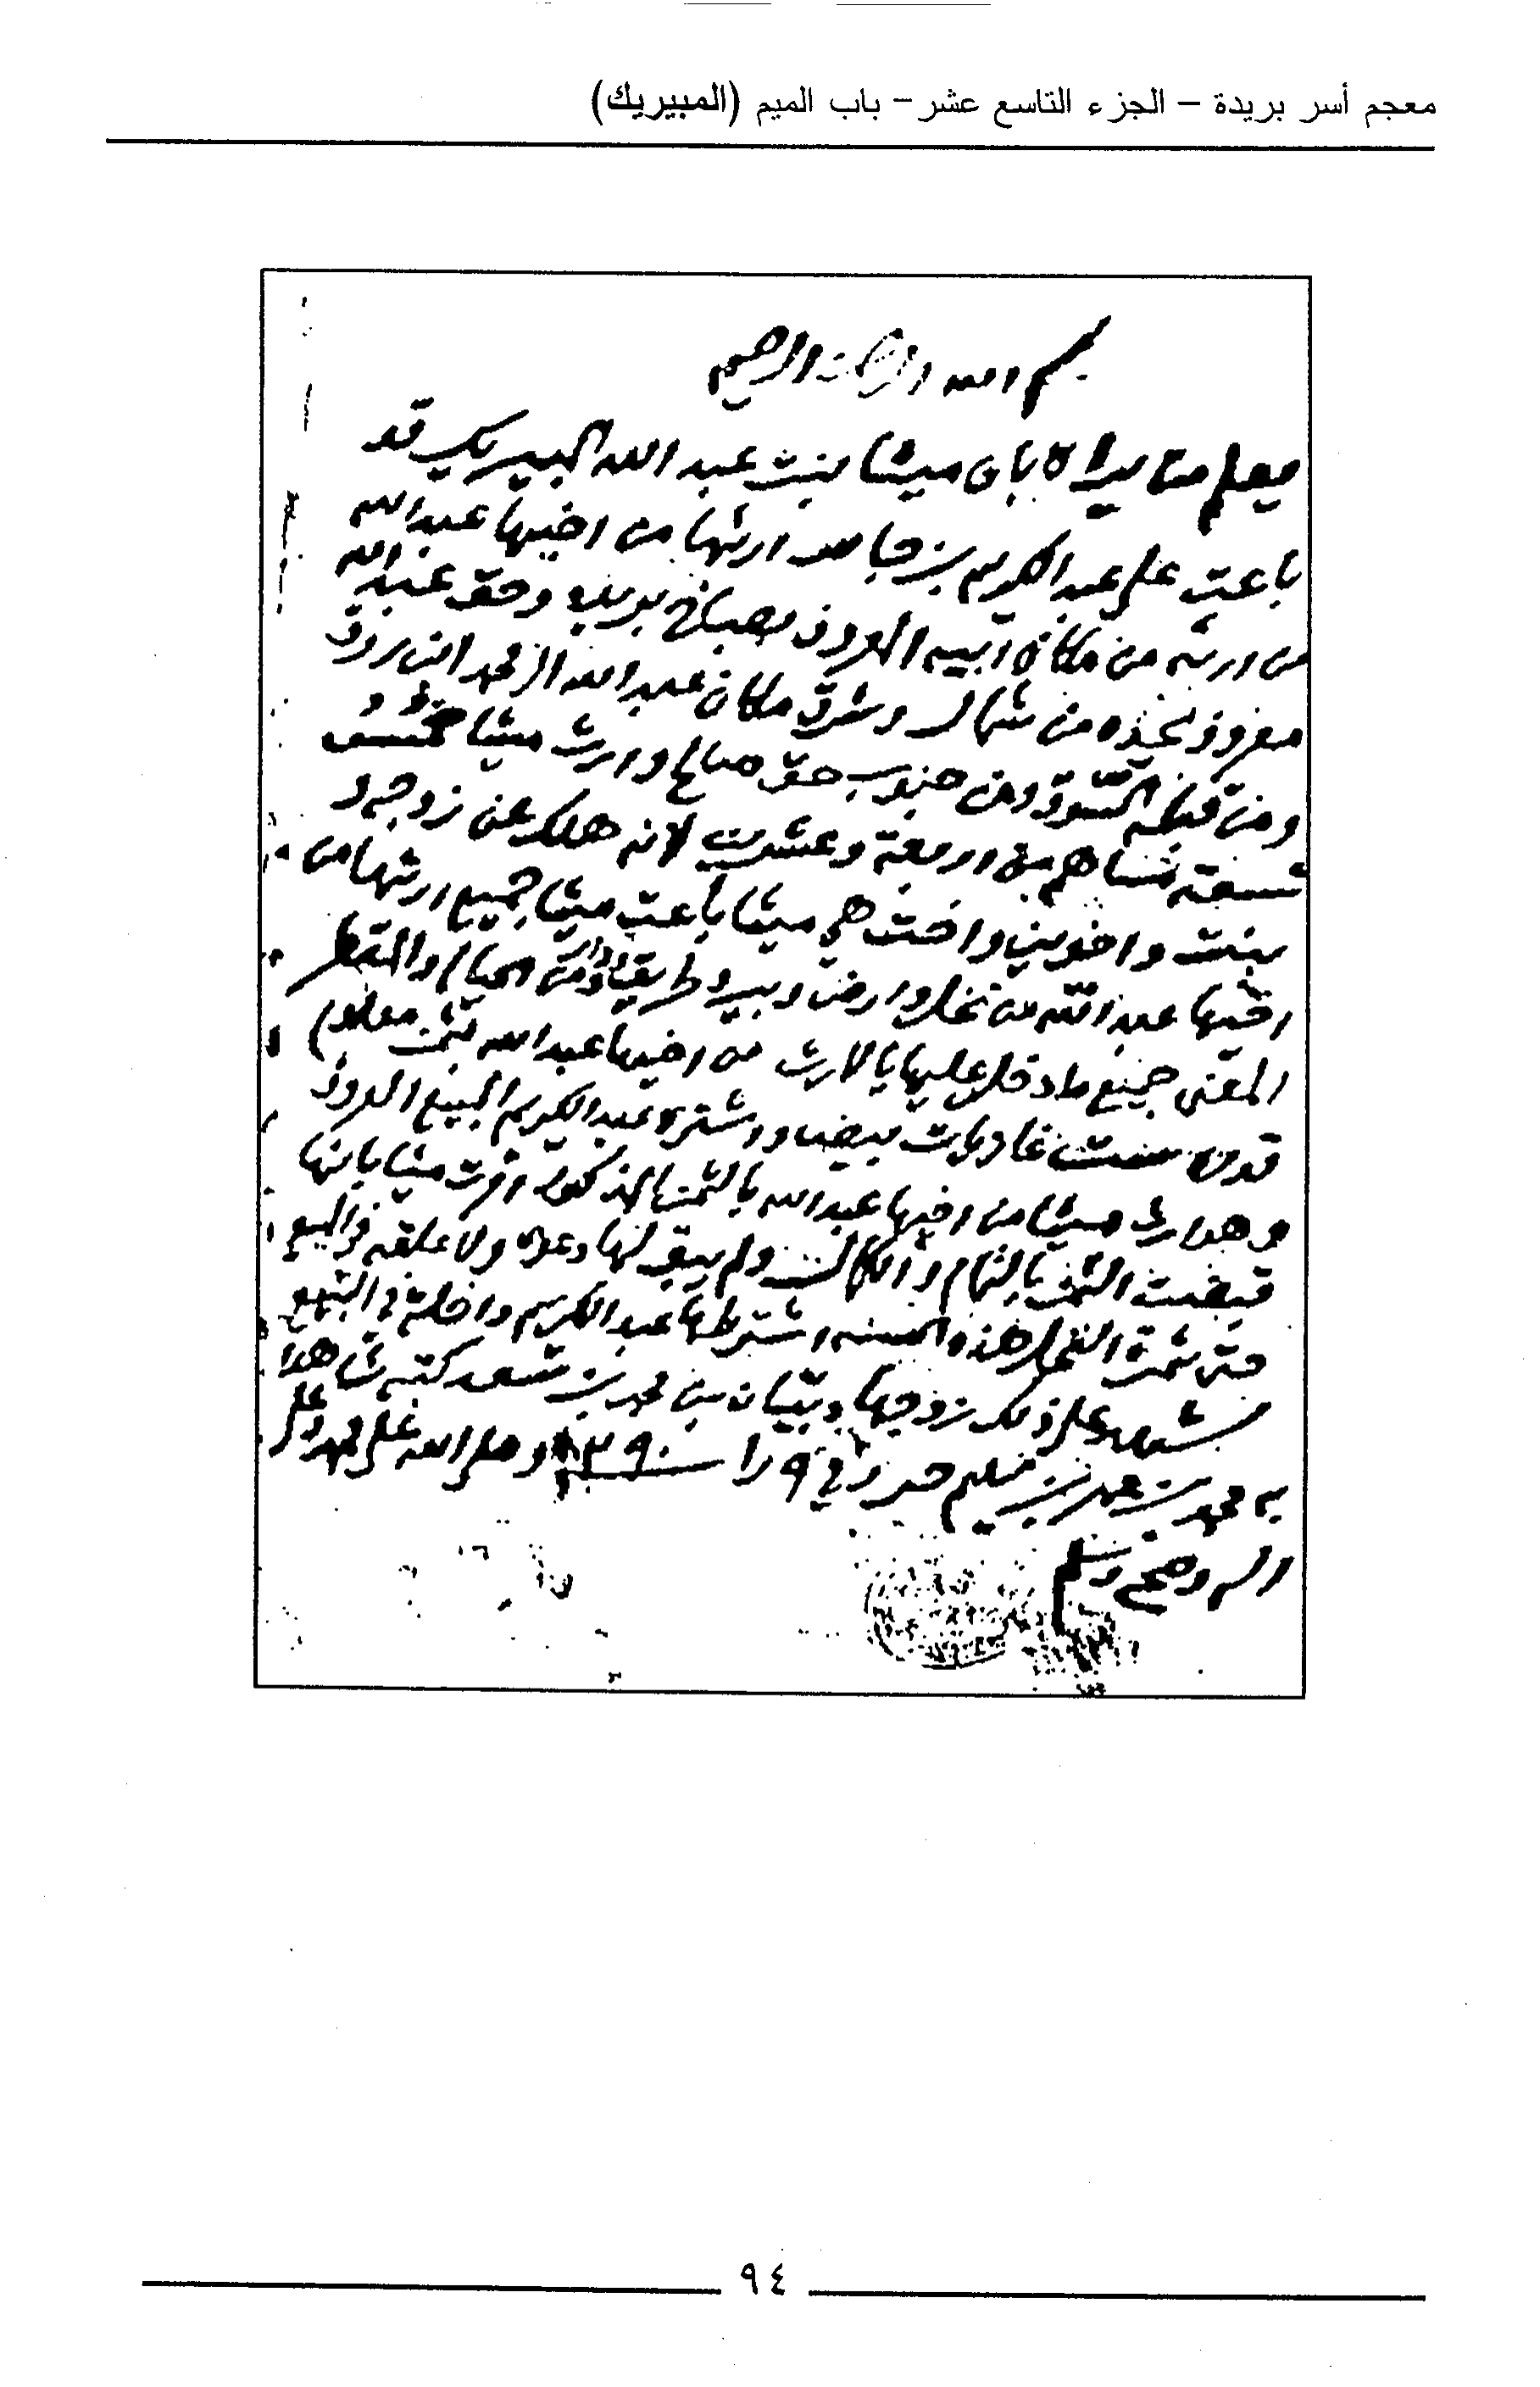 معجم أسر بريدة – الجزء التاسع عشر – باب الميم (المبيريك)
بسم الله الرحمن الرحيم
يعلم من يراه بان ميثا بنت عبد الله المبيريك قد
باعت على عبد الكريم بن جاسر ارثها من اخيها عبد الله
من ارثه من مكان ابيه المعروف بصباخ بريده وحق عبد الله
معروف يحده من شمال وشرق مكان عبد الله المحمد
ومن قبله السوق ومن جنوب حق صالح وارث ميثا
تسعة اسهم من اربعة وعشرين لانه هلك عن زوجه و
بنت واخوين واخت هي ميثا باعت ميثا جميع ارثها من
اخيها عبد الله من نخل وارض وبير وطريق ودار
المعنى جميع ما دخل عليها بالارث من اخيها عبد الله بثمن معلوم
قدره بيض واشتره عبد الكريم المبيع المعروف
وهو ارث ميثا من اخيها عبد الله بالثمن المذكور اقرت ميثا بانها
قبضت الثمن بالتمام والكمال ولم يبق لها دعوى ولا علقه في المبيع
حتى ثمرة النخل هذه السنه اشترطها عبد الكريم داخلة في البيع
شهد على ذلك زوجها دبيان بن محمد بن سعد كتبه شاهدا
به محمد بن بن سليم حرر في ٩ را سنة ١٣٩٠ وصلى الله على محمد وعلى
اله وصحبه وسلم
٩٤